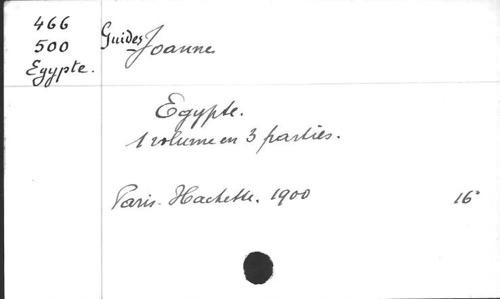 466
500
Egypte.
Guides Joanne
Egypte.
1 volume en 3 parties.
Paris. Hachette. 1900 16°